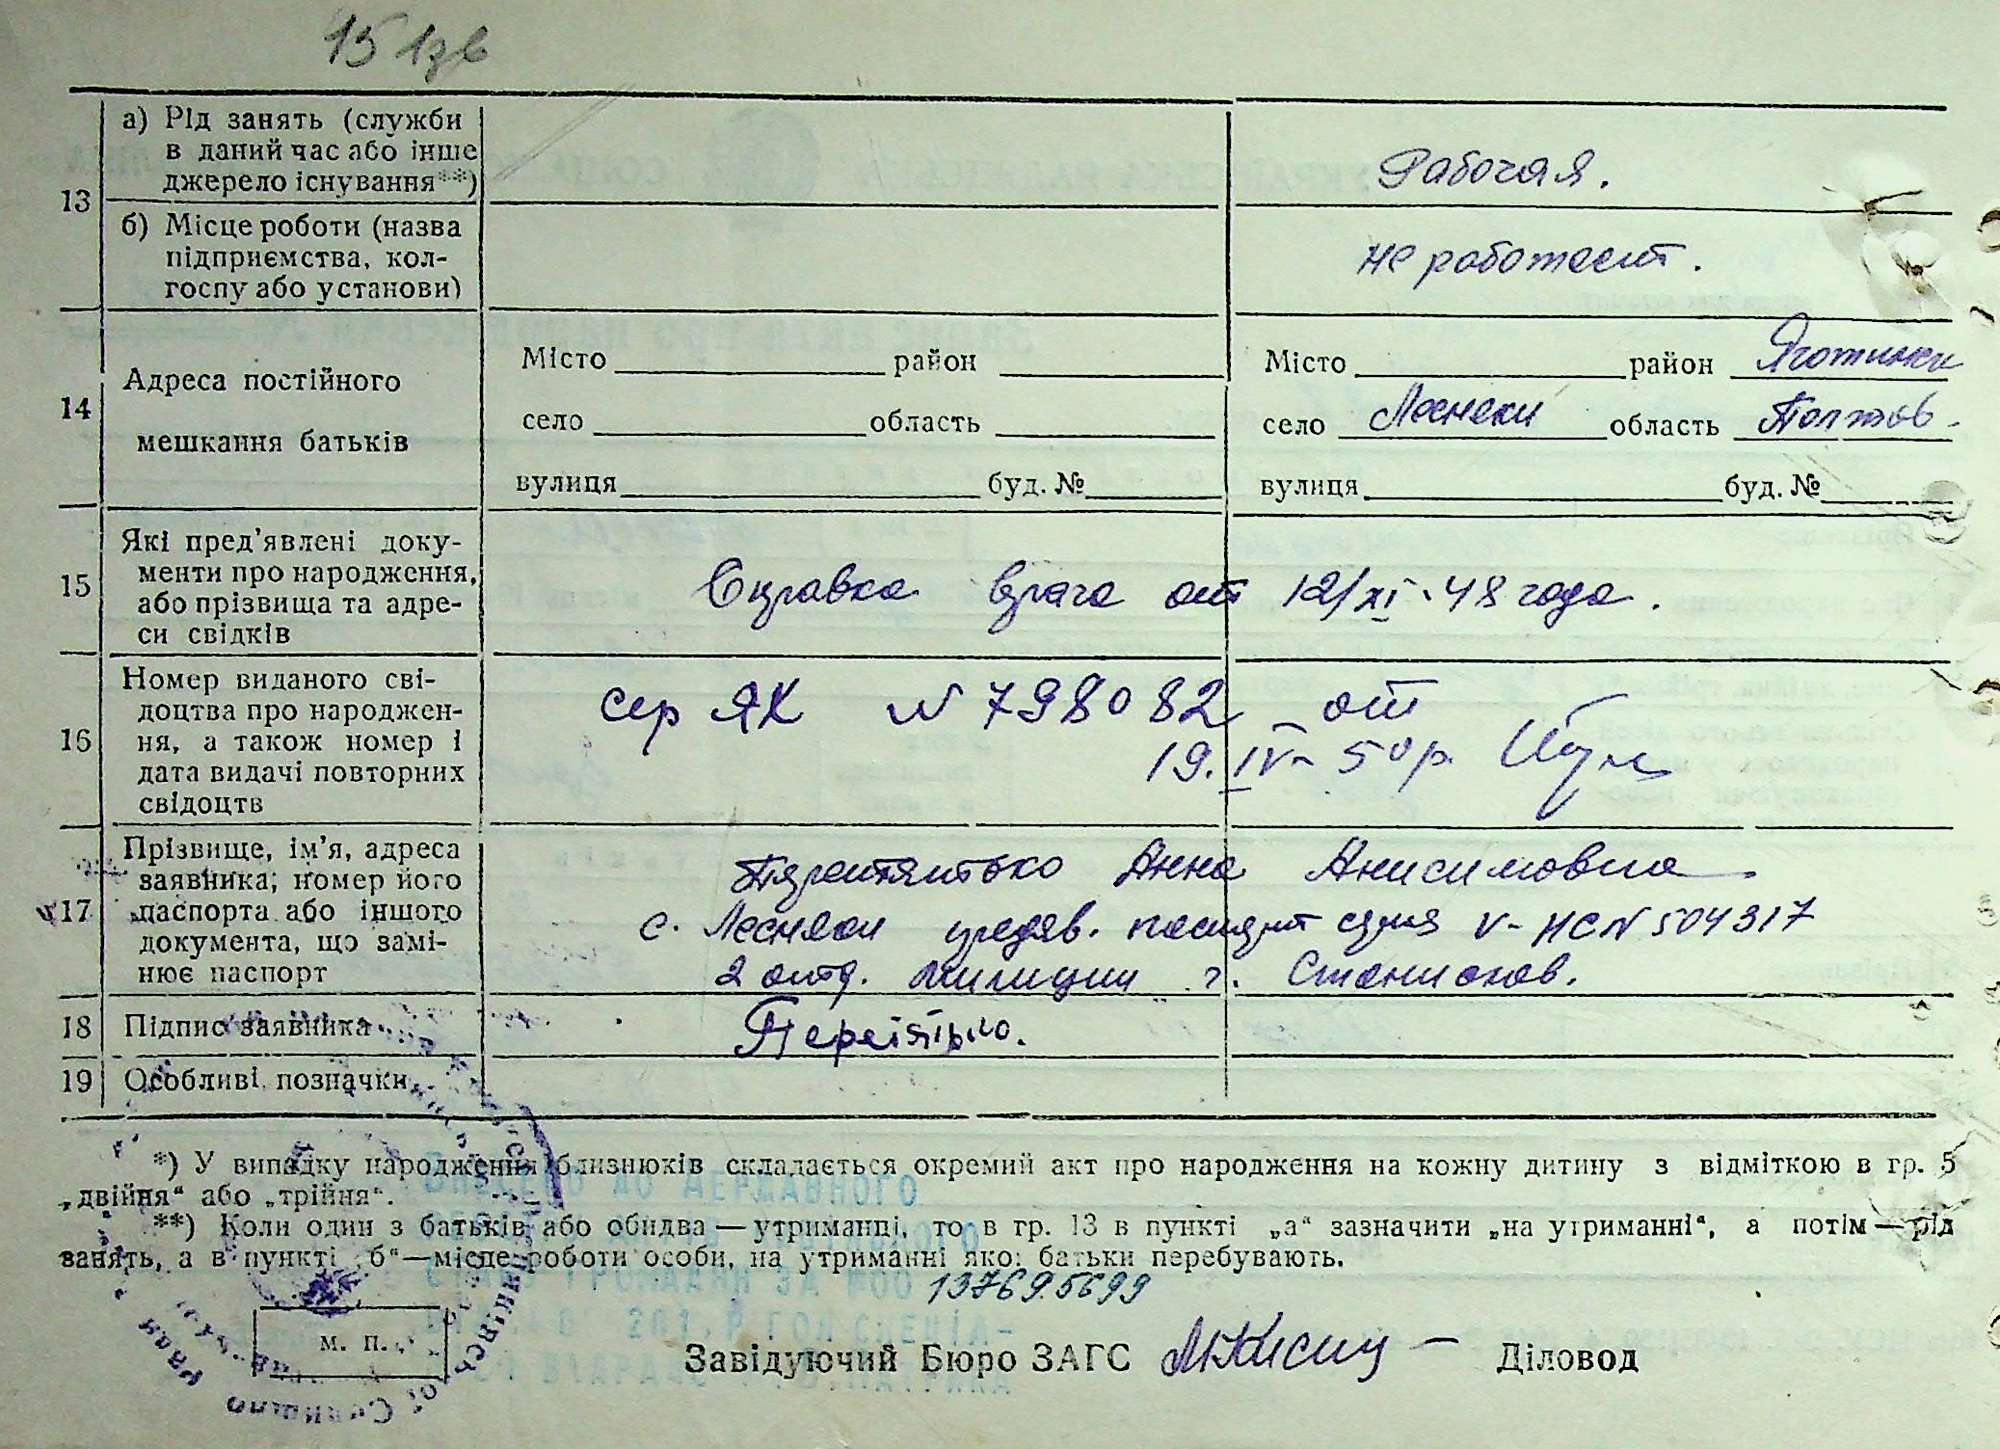 13
а) Рід занять (служби
в даний час або інше
джерело існування**)
Рабочая.
б) Місце роботи (назва
підприємства, кол-
госпу або установи)
не работает.
14
Адреса постійного
мешкання батьків
Місто район
село область
вулиця буд. №
Місто район
село область Полтав.
вулиця буд. №
15
Які пред'явлені доку-
менти про народження,
або прізвища та адре-
си свідків
Справка врача от 12/XI-48 года.
16
Номер виданого сві-
доцтва про народжен-
ня, а також номер і
дата видачі повторних
свідоцтв
сер ЯХ N 798082 от
19.IV-50р.
17
Прізвище, ім'я, адреса
заявника, номер його
паспорта або іншого
документа, що замі-
нює паспорт
Анна Анисимовна
с. V-НС N 504317
2 отд. милиции г. Станислав.
18
Підпис заявника
19
Особливі позначки
*) У випадку народження близнюків складається окремий акт про народження на кожну дитину з відміткою в гр. 5
„двійня“ або „трійня“.
**) Коли один з батьків або обидва — утриманці, то в гр. 13 в пункті „а“ зазначити „на утриманні“, а потім — рід
занять, а в пункті „б“ — місце роботи особи, на утриманні якої батьки перебувають.
137695699
м. п.
Завідуючий Бюро ЗАГС Діловод